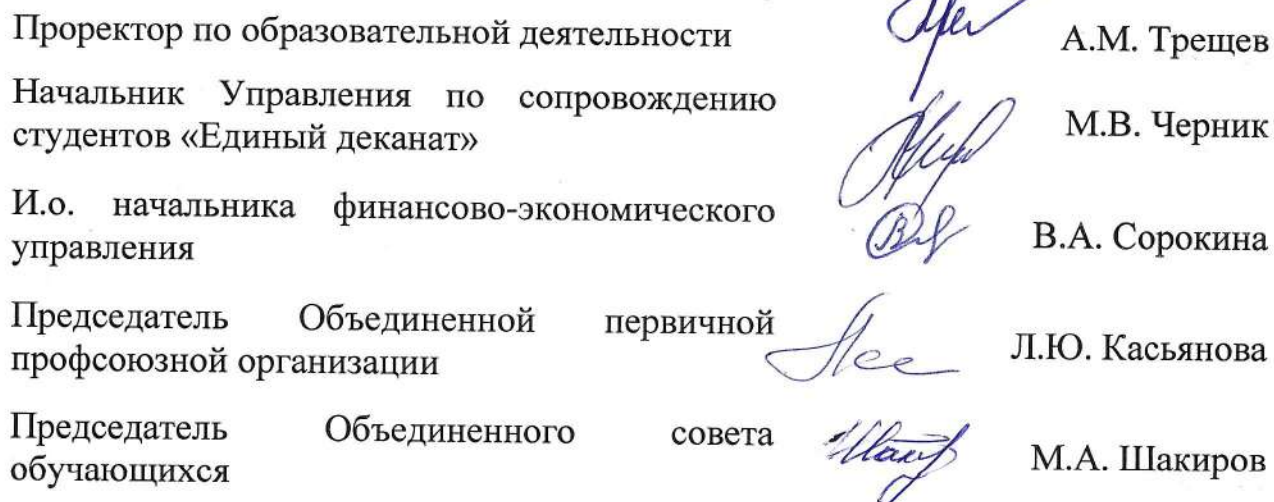 Проректор по образовательной деятельности А.М. Трещев
Начальник Управления по сопровождению
студентов «Единый деканат» М.В. Черник
И.о. начальника финансово-экономического
управления В.А. Сорокина
Председатель Объединенной первичной
профсоюзной организации Л.Ю. Касьянова
Председатель Объединенного совета
обучающихся М.А. Шакиров